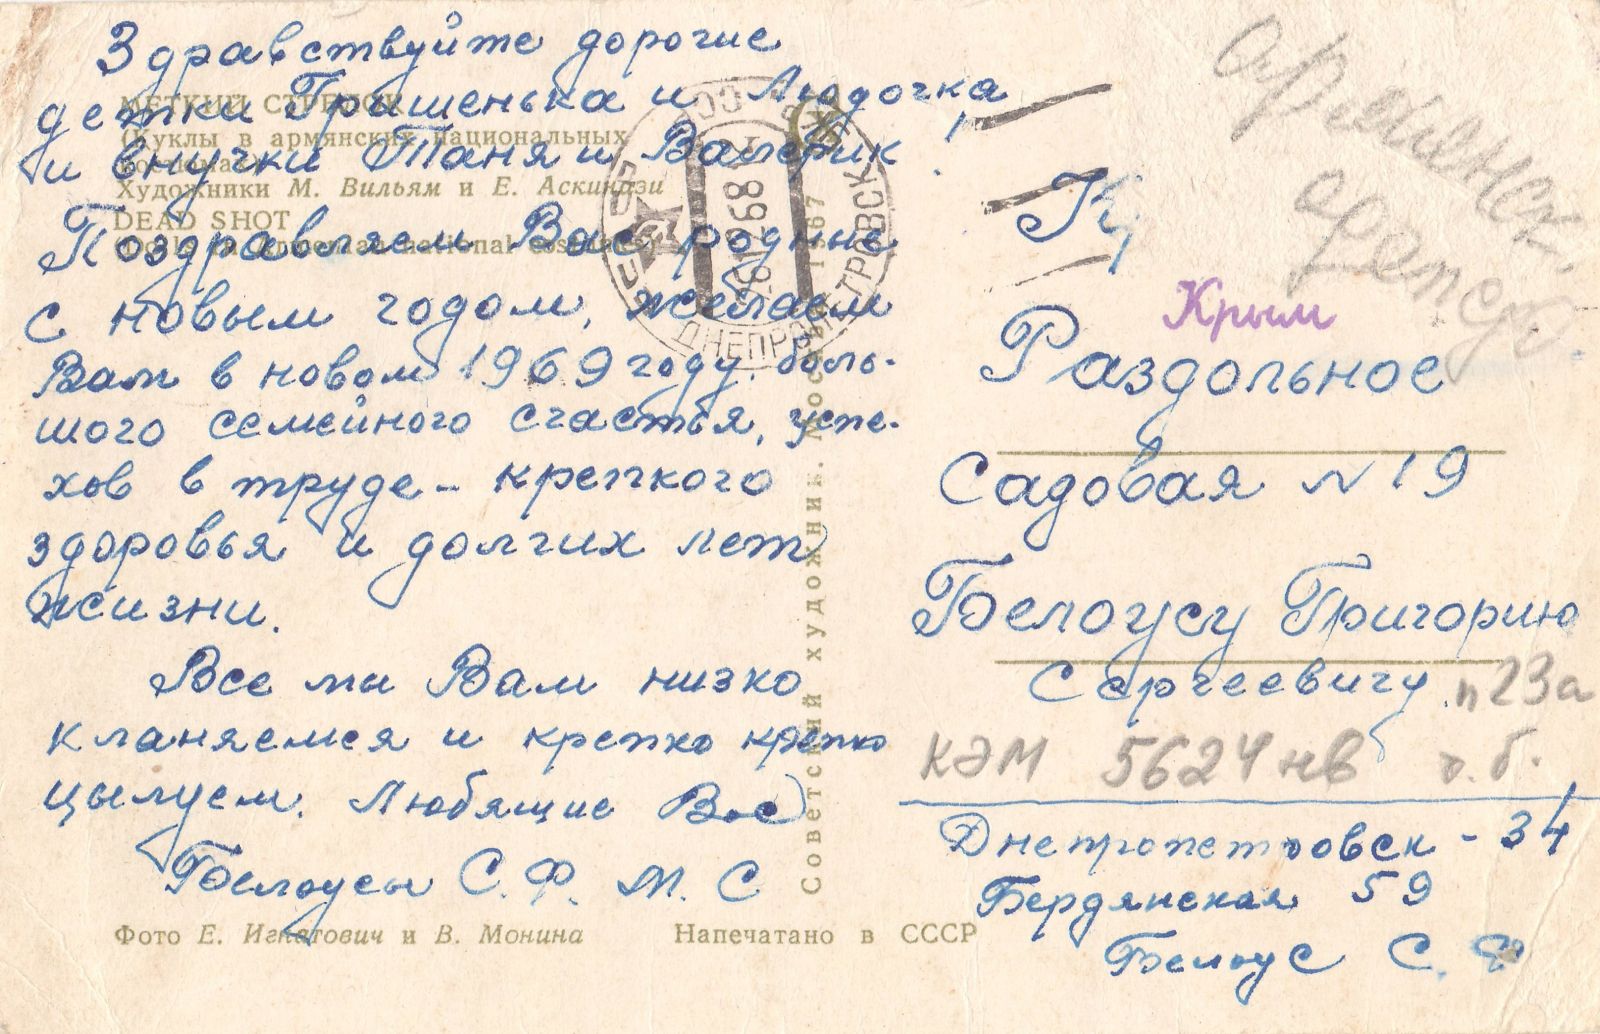 Здравствуйте дорогие
детки Гришенька и Людочка
и внучки Таня и Валерик!
Поздравляем Вас родные
с новым годом, желаем
Вам в новом 1969 году, боль-
шого семейного счастья, успе-
хов в труде - крепкого
здоровья и долгих лет
жизни.
Все мы Вам низко
кланяемся и крепко крепко
цылуем. Любящие Вас
Белоусы С. Ф. М. С
МЕТКИЙ СТРЕЛОК
(Куклы в армянских национальных
костюмах)
Художники М. Вильям и Е. Аскинази
DEAD SHOT
Dolls in Armenian national costumes
Фото Е. Игнатович и В. Монина
Напечатано в СССР
Советский художник. Москва 1967
СССР
26 12 68
ДНЕПРОПЕТРОВСК
Крым
Раздольное
Садовая N 19
Белоусу Григорию
Сергеевичу
п 23а
КЭМ 5624 нв
Днепропетровск - 34
Бердянская 59
Белоус С. Ф